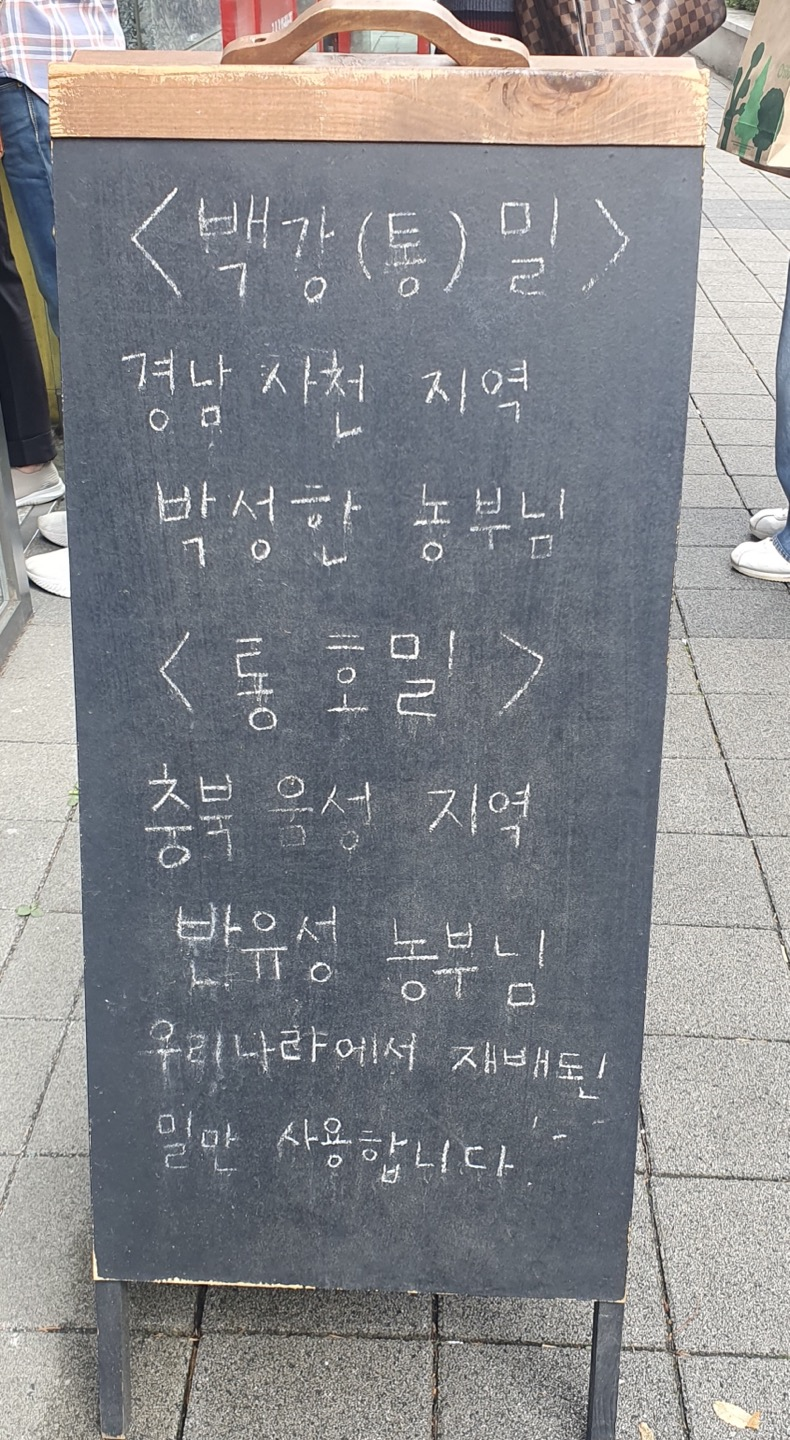 <백강(통)밀>
경남 사천 지역
박성한 농부님
<통 호밀>
충북 음성 지역
반유성 농부님
우리나라에서 재배된
밀만 사용합니다.